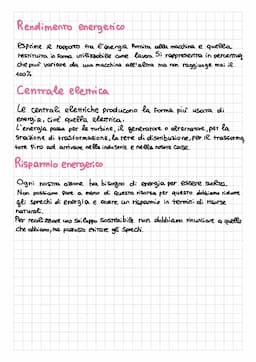 Rendimento energetico
Esprime il rapporto tra l'energia fornita alla macchina e quella
restituita in forma utilizzabile come lavoro. Si rappresenta in percentuale
che puo' variare da una macchina all'altra ma non raggiunge mai il
100%
Centrale elettrica
Le centrali elettriche producono la forma piu' usata di
energia, cioe' quella elettrica.
L'energia passa per la turbine, il generatore o alternatore, per la
stazione di trasformazione, la rete di distribuzione, per il trasforma
tore fino ad arrivare nelle industrie e nelle nostre case.
Risparmio energetico
Ogni nostra azione ha bisogno di energia per essere svolta.
Non possiamo fare a meno di questa risorsa per questo dobbiamo ridurre
gli sprechi di energia e avere un risparmio in termini di risorse
naturali.
Per realizzare uno sviluppo sostenibile non dobbiamo rinunciare a quello
che abbiamo, ma piuttosto evitare gli sprechi.